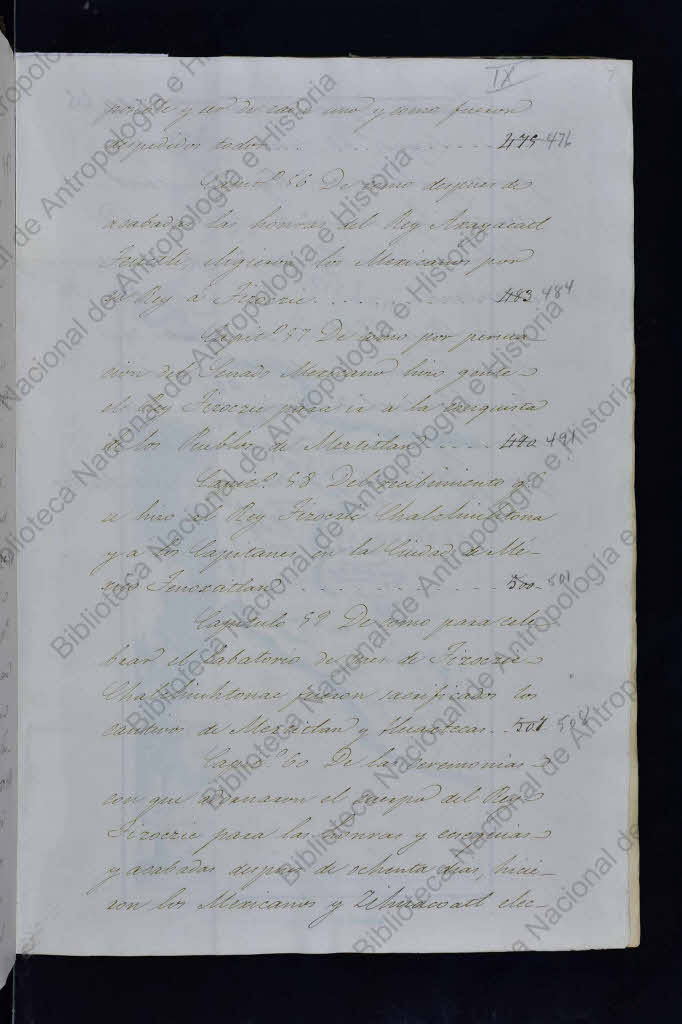 IX 7
y uso de cada uno y como fueron
despedidos todos . . . 475 476
Capit.º 56 De como despues de
acabadas las honras del Rey Axayacatl
Teuctli, eligieron los Mexicanos por
su Rey á Tizoczic . . . 483 484
Capit.º 57 De como por persua
cion del Senado Mexicano hizo gente
el Rey Tizoczic para ir á la conquista
de los Pueblos de Meztitlan . . . 490 491
Capit.º 58 Del recibimiento q.e
se hizo al Rey Tizoczic Chalchiuhtona
y a los Capitanes en la Ciudad de Mé-
xico Tenoxtitlan . . . 500 501
Capitulo 59 De como para cele
brar el labatorio de pies de Tizoczic
Chalchiuhtonac fueron sacrificados los
cautivos de Meztitlan y Huaxtecas . . 507 508
Capit.º 60 De las ceremonias
con que adornaron el cuerpo del Rey
Tizoczic para las honras y exequias
y acabadas despues de ochenta dias, hicie-
ron los Mexicanos y Zihuacoatl elec-
Biblioteca Nacional de Antropología e Historia